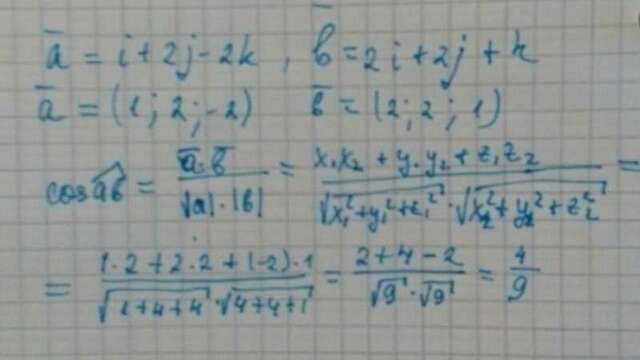 a̅ = i + 2j - 2k , b̅ = 2i + 2j + k
a̅ = (1; 2; -2) b̅ = (2; 2; 1)
cos a͡b = a̅·b̅ / |a|·|b| = x₁x₂ + y₁y₂ + z₁z₂ / √x₁² + y₁² + z₁² · √x₂² + y₂² + z₂² =
= 1·2 + 2·2 + (-2)·1 / √1+4+4 · √4+4+1 = 2+4-2 / √9 · √9 = 4/9